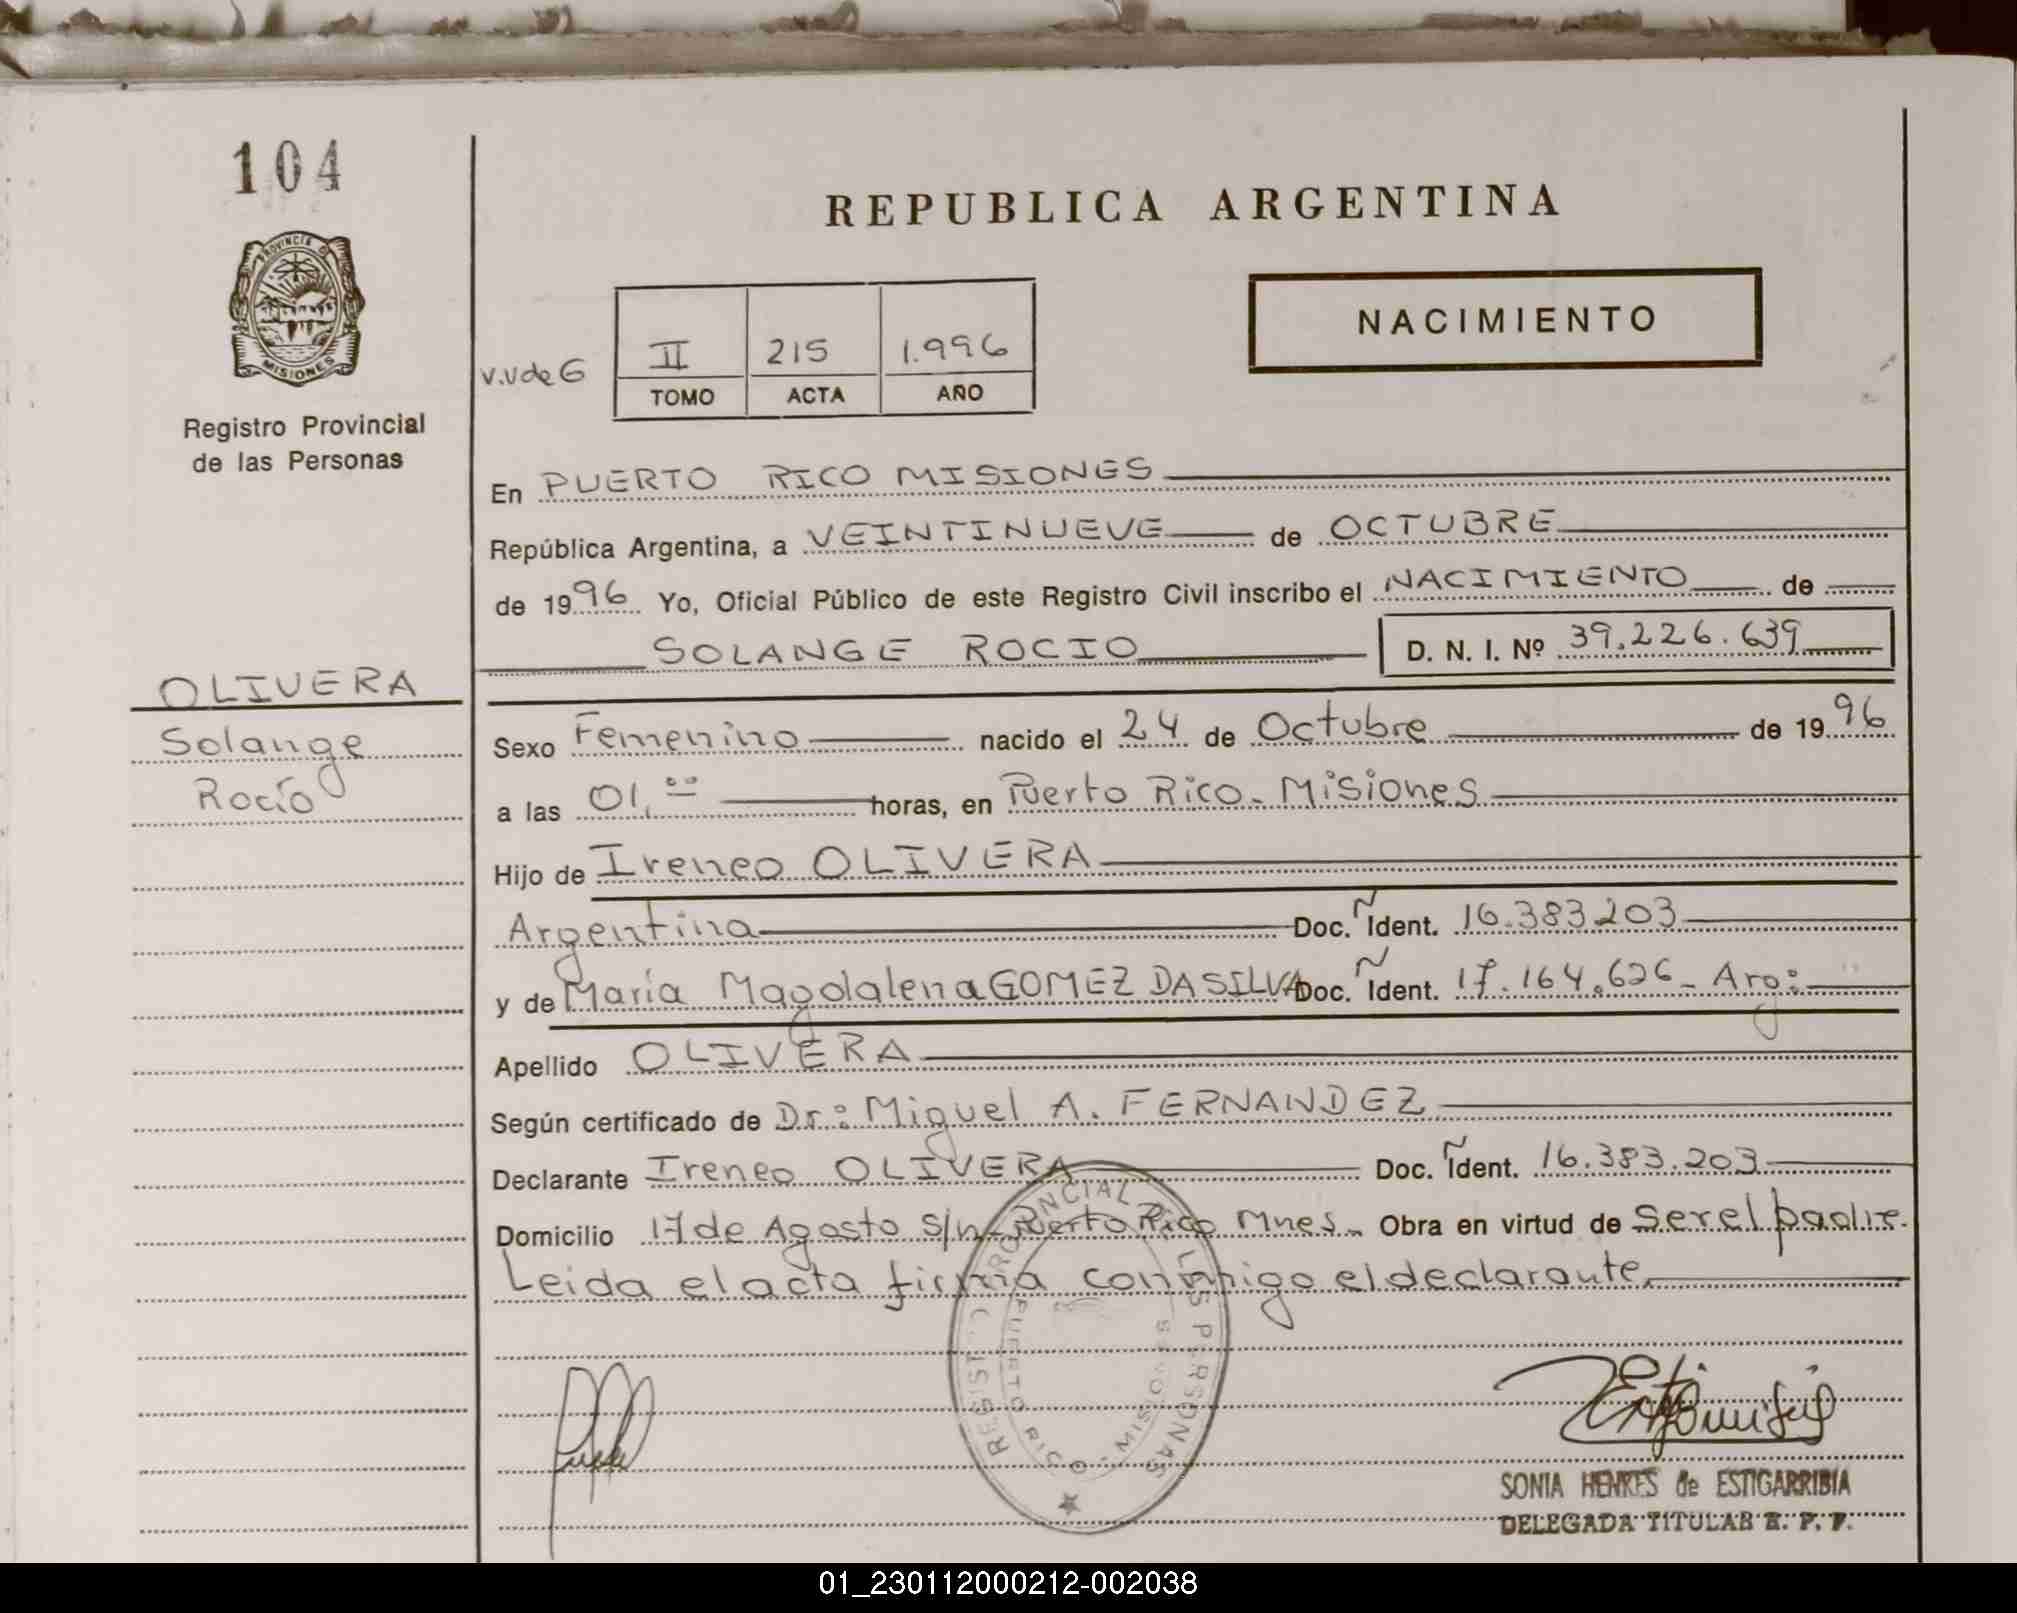 104
REPUBLICA ARGENTINA
PROVINCIA DE MISIONES
NACIMIENTO
V.V de G
II 215 1.996
TOMO ACTA AÑO
Registro Provincial
de las Personas
En PUERTO RICO MISIONES
República Argentina, a VEINTINUEVE de OCTUBRE
de 1996 Yo, Oficial Público de este Registro Civil inscribo el NACIMIENTO de
SOLANGE ROCIO D. N. I. Nº 39.226.639
OLIVERA
Solange
Rocío
Sexo Femenino nacido el 24 de Octubre de 1996
a las 01,00 horas, en Puerto Rico - Misiones
Hijo de Ireneo OLIVERA
Argentina Doc. Ident. 16.383.203
y de María Magdalena GOMEZ DA SILVA Doc. Ident. 17.164.626 - Arg:
Apellido OLIVERA
Según certificado de Dr.: Miguel A. FERNANDEZ
Declarante Ireneo OLIVERA Doc. Ident. 16.383.203
Domicilio 17 de Agosto s/n - Puerto Rico Mnes. Obra en virtud de Ser el padre.
Leida el acta firma conmigo el declarante.
REGISTRO PROVINCIAL DE LAS PERSONAS
PUERTO RICO - MISIONES
SONIA HENKES de ESTIGARRIBIA
DELEGADA TITULAR R. P. P.
01_230112000212-002038